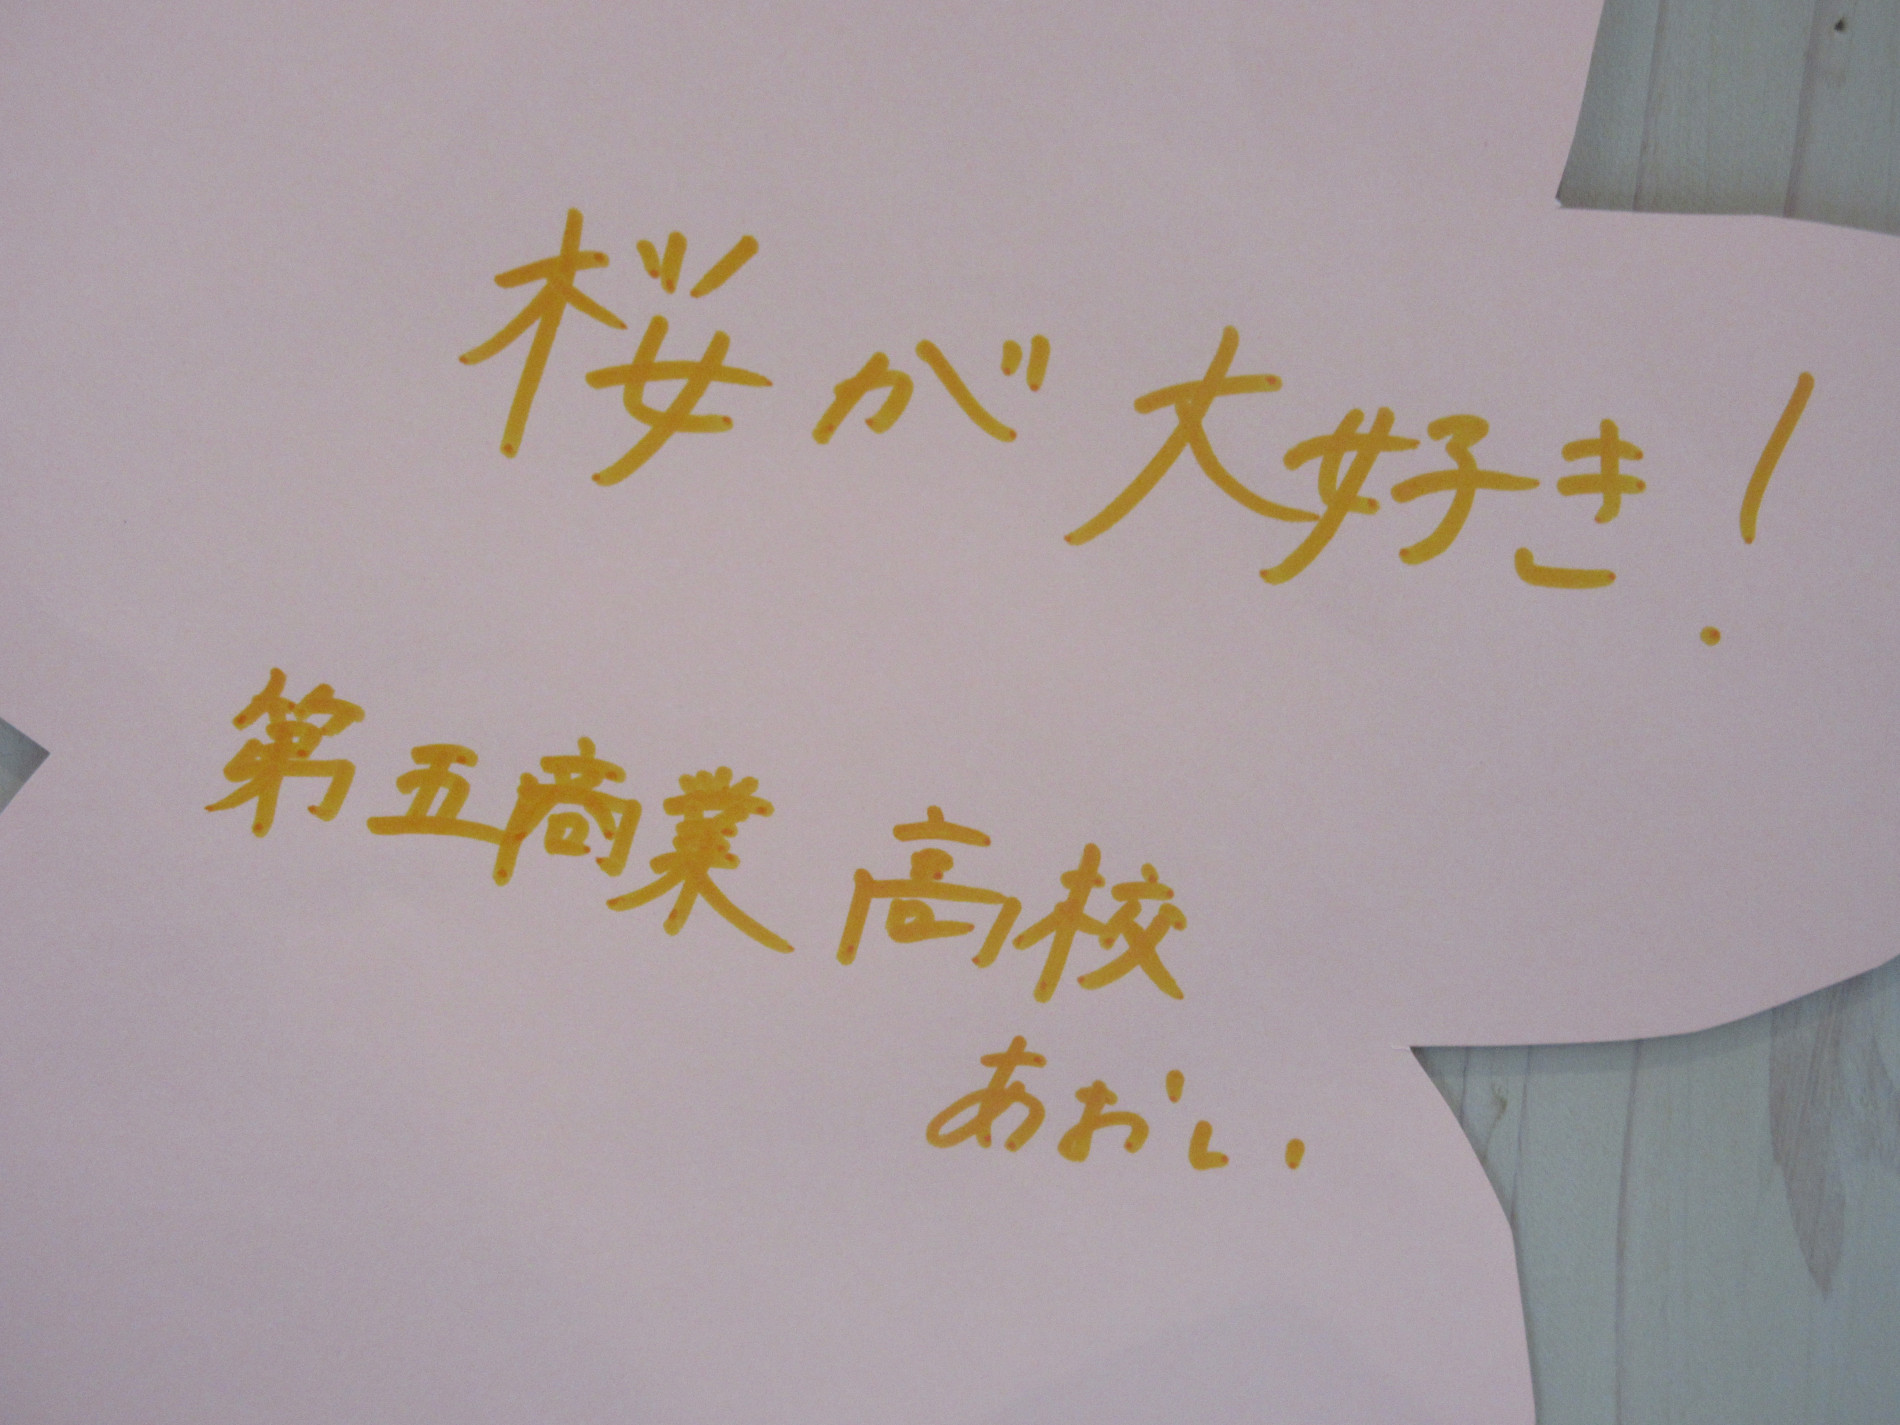 桜が大好き!
第五商業高校
あおい